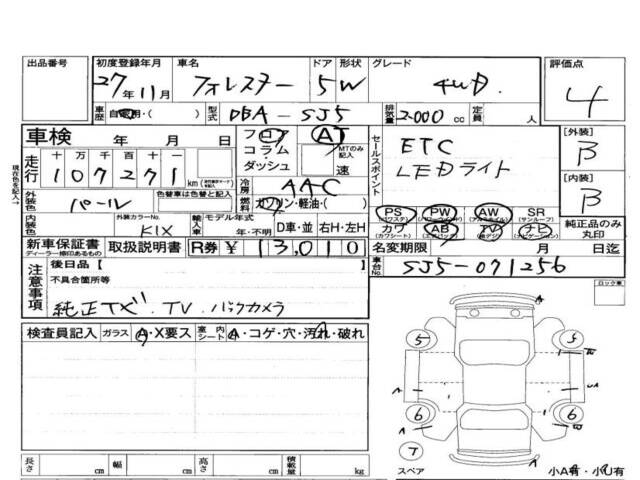 出品番号 初度登録年月 車名 ドア 形状 グレード 評価点
27年11月 フォレスター 5 W 4WD 4
車歴 自家用・( ) 型式 DBA-SJ5 排気量 2000cc 定員 人
車検 年 月 日 フロア AT セールスポイント ETC [外装] B
コラム MTのみ記入 LEDライト
走行 十万千百十一 ダッシュ 速
107271km 冷房 AAC [内装] B
外装色 色替車は色替と記入 パール 燃料 ガソリン・軽油・( )
PS PW AW SR
内装色 外装カラーNo. K1X 輸入車 モデル年式 年・不明 D車・並 右H・左H カワ AB TV ナビ 純正品のみ丸印
新車保証書 取扱説明書 R券 ¥13,010 名変期限 月 日迄
ディーラー捺印あるもの 車台No. SJ5-071256
注意事項 後日品【 】 ロック車
不具合箇所等
純正TV. TV. バックカメラ
検査員記入 ガラス A・X要ス 室内シート A・コゲ・穴・汚れ・破れ
5 5
A A
6 6
T
スペア 小A有・小U有
長さ cm 幅 cm 高さ cm 積載量 kg
現在色を記入